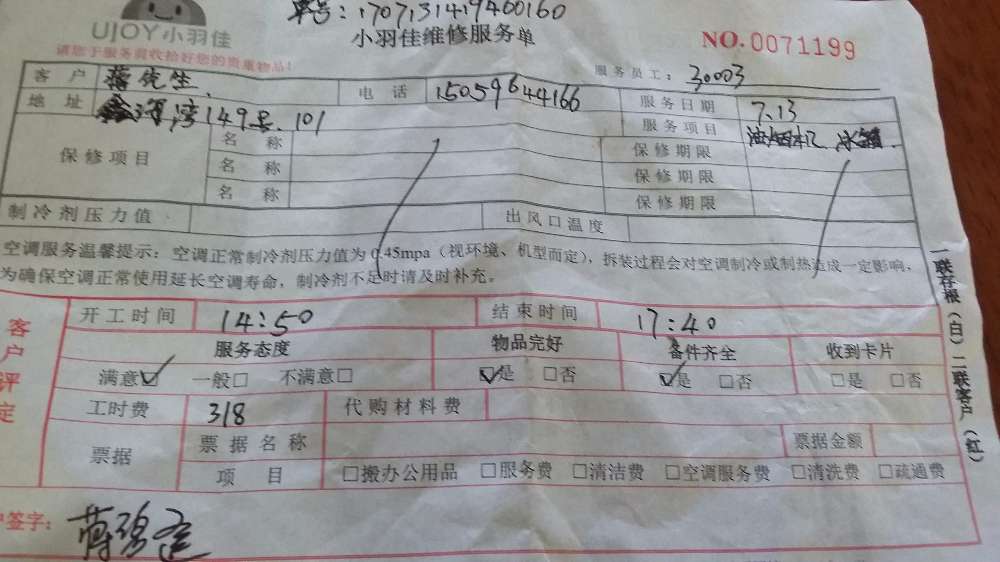 单号:1707131419460160
UJOY小羽佳
小羽佳维修服务单
NO.0071199
请您于服务前收拾好您的贵重物品!
服务员工: 30003
客 户 蒋先生. 电 话 15059644166 服务日期 7.13
地 址 海湾149号.101 服务项目 油烟机 冰箱.
保修项目 名 称 保修期限
名 称 保修期限
名 称 保修期限
制冷剂压力值 出风口温度
空调服务温馨提示:空调正常制冷剂压力值为0.45mpa(视环境、机型而定),拆装过程会对空调制冷或制热造成一定影响,
为确保空调正常使用延长空调寿命,制冷剂不足时请及时补充。
一联存根(白)二联客户(红)
客户评定
开工时间 14:50 结束时间 17:40
服务态度 物品完好 备件齐全 收到卡片
满意☑ 一般□ 不满意□ ☑是 □否 ☑是 □否 □是 □否
工时费 318 代购材料费
票据 票据名称 票据金额
项 目 □搬办公用品 □服务费 □清洁费 □空调服务费 □清洗费 □疏通费
户签字: